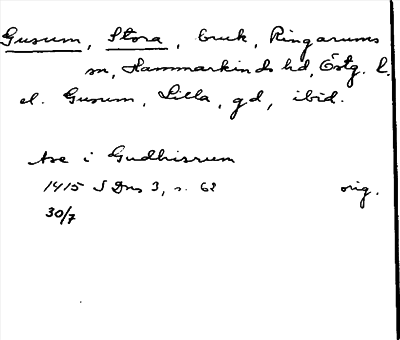 Gusum, Stora, bruk, Ringarums
sn, Hammarkinds hd, Östg. l.
el. Gusum, Lilla, gd, ibid.
Ase i Gudhisrum
1415 SDns 3, s. 62 orig.
30/7